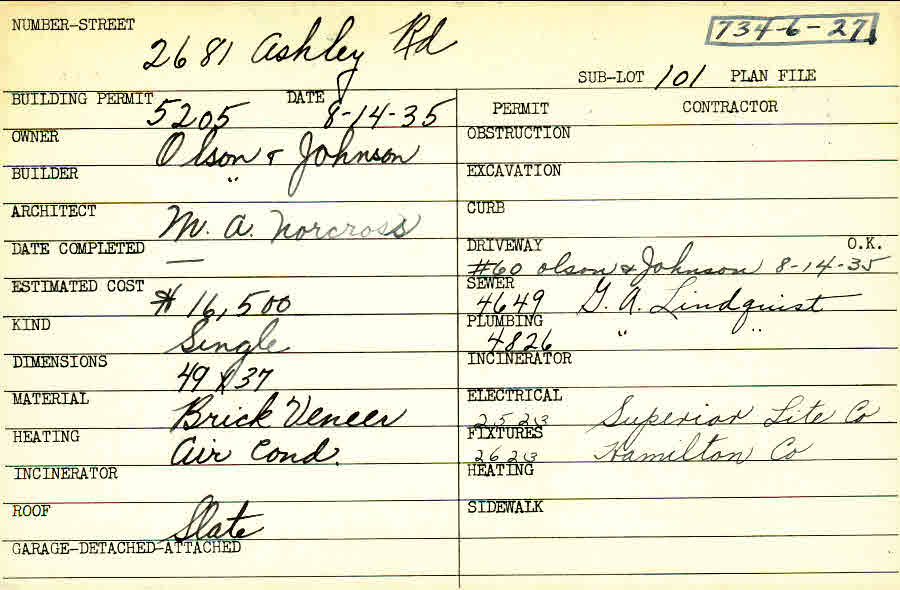 NUMBER-STREET 2681 Ashley Rd 734-6-27
SUB-LOT 101 PLAN FILE
BUILDING PERMIT 5205 DATE 8-14-35
OWNER Olson & Johnson
BUILDER "
ARCHITECT M. A. Norcross
DATE COMPLETED —
ESTIMATED COST $ 16,500
KIND Single
DIMENSIONS 49 X 37
MATERIAL Brick Veneer
HEATING Air Cond.
INCINERATOR
ROOF Slate
GARAGE-DETACHED-ATTACHED
PERMIT CONTRACTOR
OBSTRUCTION
EXCAVATION
CURB
DRIVEWAY O.K.
#60 Olson & Johnson 8-14-35
SEWER 4649 G. A. Lindquist
PLUMBING 4826 " "
INCINERATOR
ELECTRICAL Superior Lite Co
FIXTURES Hamilton Co
HEATING
SIDEWALK